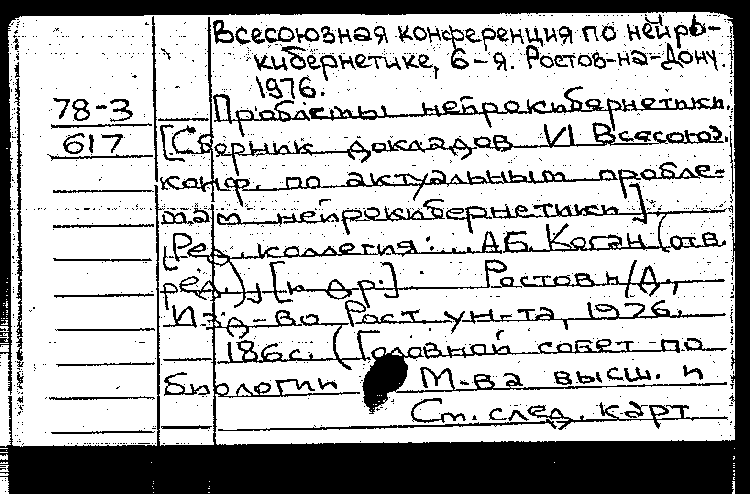 Всесоюзная конференция по нейро-
кибернетике, 6-я. Ростов-на-Дону.
1976.
78-3 Проблемы нейрокибернетики.
617 [Сборник докладов VI Всесоюз.
конф. по актуальным пробле-
мам нейрокибернетики].
[Ред. коллегия: ... А.Б. Коган (отв.
ред.), [и др.] Ростов н/Д.,
Изд-во Рост. ун-та, 1976.
186с. (Головной совет по
биологии М-ва высш. и
См. след. карт